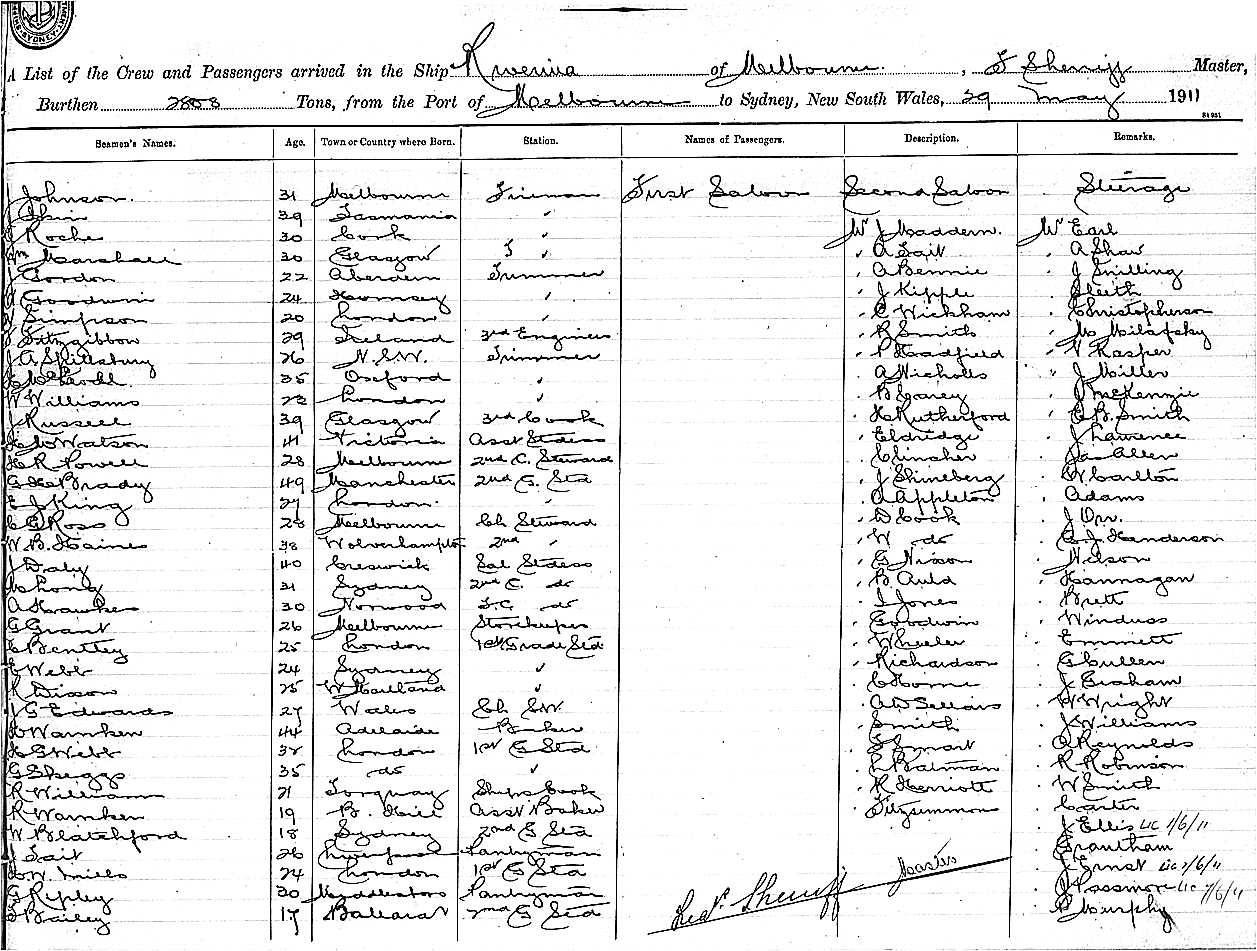 SYDNEY
A List of the Crew and Passengers arrived in the Ship of Melbourne, Sherriff Master,
Burthen 2808 Tons, from the Port of Melbourne to Sydney, New South Wales, 29 May 1911
Seamen's Names. Age. Town or Country where Born. Station. Names of Passengers. Description. Remarks.
J Johnson. 31 Melbourne Fireman First Saloon Second Saloon Steerage
39 Tasmania "
J Roche 30 Cork " Mr J Maddern. Mr Earl
Wm Marshall 30 Glasgow " " A Tait " A Shaw
J Gordon 22 Aberdeen Trimmer " A Bennie " J Snilling
J Goodwin 24 Hornsey " " J Kipple " Sleeth
Simpson 20 London " " C Wickham " Christopherson
J Fitzgibbon 29 Ireland 3rd Engineers " R Smith " M Milafsky
J A Spillsbury 26 N.S.W. Trimmer " P Hadfield " V Kasper
35 Oxford " " A Nicholls " J Miller
W Williams London " " B Carey " J McKenzie
J Russell 39 Glasgow 3rd Cook " H Rutherford " E B Smith
Watson 41 Victoria Asst Stdess " Eldridge " J Lawrence
H R Powell 28 Melbourne 2nd C. Steward " Clincher " Jas Allen
G H Brady 49 Manchester 2nd G. Std " J Shineberg " W Carlton
E J King 27 London " " A Appleton " Adams
C G Ross 28 Melbourne Ch Steward " D Cook " J Orr.
W. B. Haines 38 Wolverhampton 2nd " " W do " C. J. Henderson
J Daly 40 Creswick Sal Stdess " G Nixon " Nelson
M Long 31 Sydney 2nd C. do " B Auld " Hannagan
A Hawkes 30 Norwood do " J Jones " Brett
G Grant 26 Melbourne Storekeeper " Goodwin " Winduss
C Bentley 25 London 1st Grade Std " Wheeler " Emmett
E Webb 24 Sydney " " Richardson " G Cullen
R Dixon 25 W Maitland " " C Horne " J Graham
Edwards 27 Wales Ch " A W Sellars " W Wright
H Warnken 44 Adelaide Baker " Smith " J Williams
H G Webb 32 London 1st G Std " Smart " A Reynolds
G Skeggs 35 do " " Batman " R Robinson
R William 21 Torquay Ships Cook " R Herriott " W Smith
R Warnken 19 B. Hill Asst Baker " Fitzsimmon " Carter
W Blatchford 18 Sydney 2nd G Std " J Ellis
J Tait 26 Liverpool Pantryman " Grantham
Mills 24 London 1st G Std " J Ernst
G Ripley 30 Pantryman " J Passmore
Bailey 17 Ballarat 2nd G Std " P Murphy
Sherriff Master